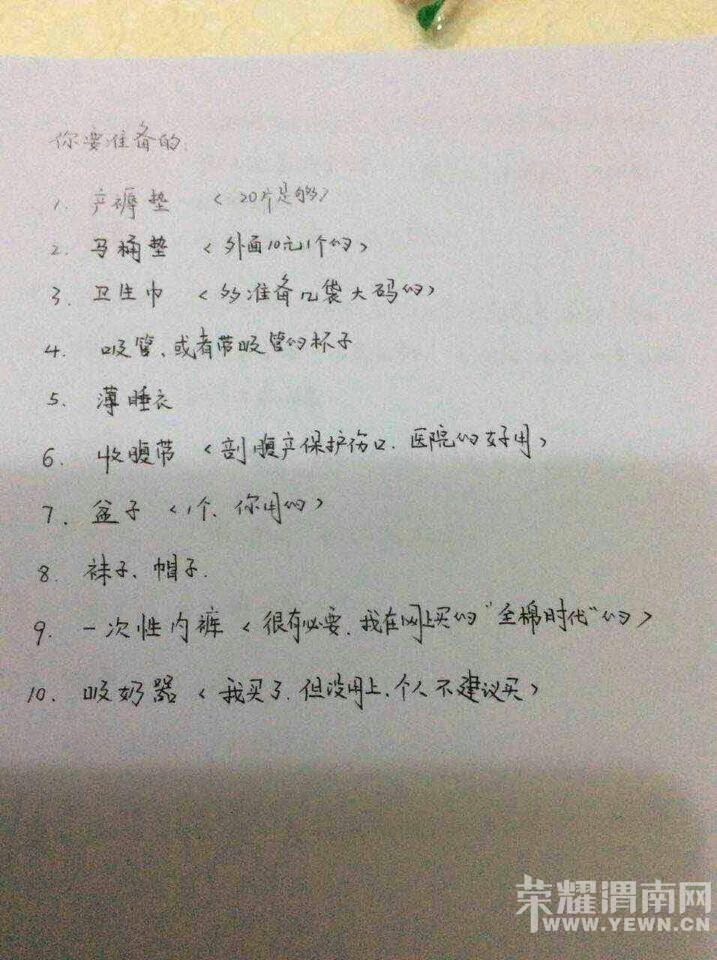 你要准备的:
1. 产褥垫 <20片足够>
2. 马桶垫 <外面10元1个的>
3. 卫生巾 <多准备几袋大码的>
4. 吸管、或者带吸管的杯子
5. 薄睡衣
6. 收腹带 <剖腹产保护伤口、医院的好用>
7. 盆子 <1个、你用的>
8. 袜子、帽子.
9. 一次性内裤 <很有必要、我在网上买的“全棉时代”的>
10. 吸奶器 <我买了、但没用上、个人不建议买>
荣耀渭南网
WWW.YEWN.CN